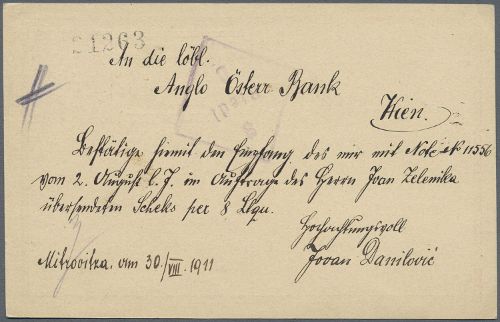 21263
An die löbl.
Anglo Österr Bank
Wien.
Bestätige hiemit den Empfang des mir mit Note No 11556
vom 2. August l. J. im Auftrage des Herrn Joan Zelenika
übersendeten Scheks per 8 Ltqu.
Hochachtungsvoll
Mitrovitza, am 30./VIII. 1911
Jovan Danilović